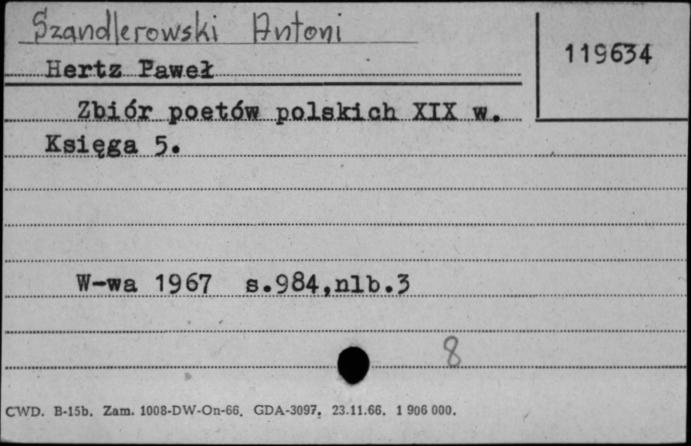 Szandlerowski Antoni
119634
Hertz Paweł
Zbiór poetów polskich XIX w.
Księga 5.
W-wa 1967 s.984,nlb.3
8
CWD. B-15b. Zam. 1008-DW-On-66. GDA-3097, 23.11.66. 1 906 000.